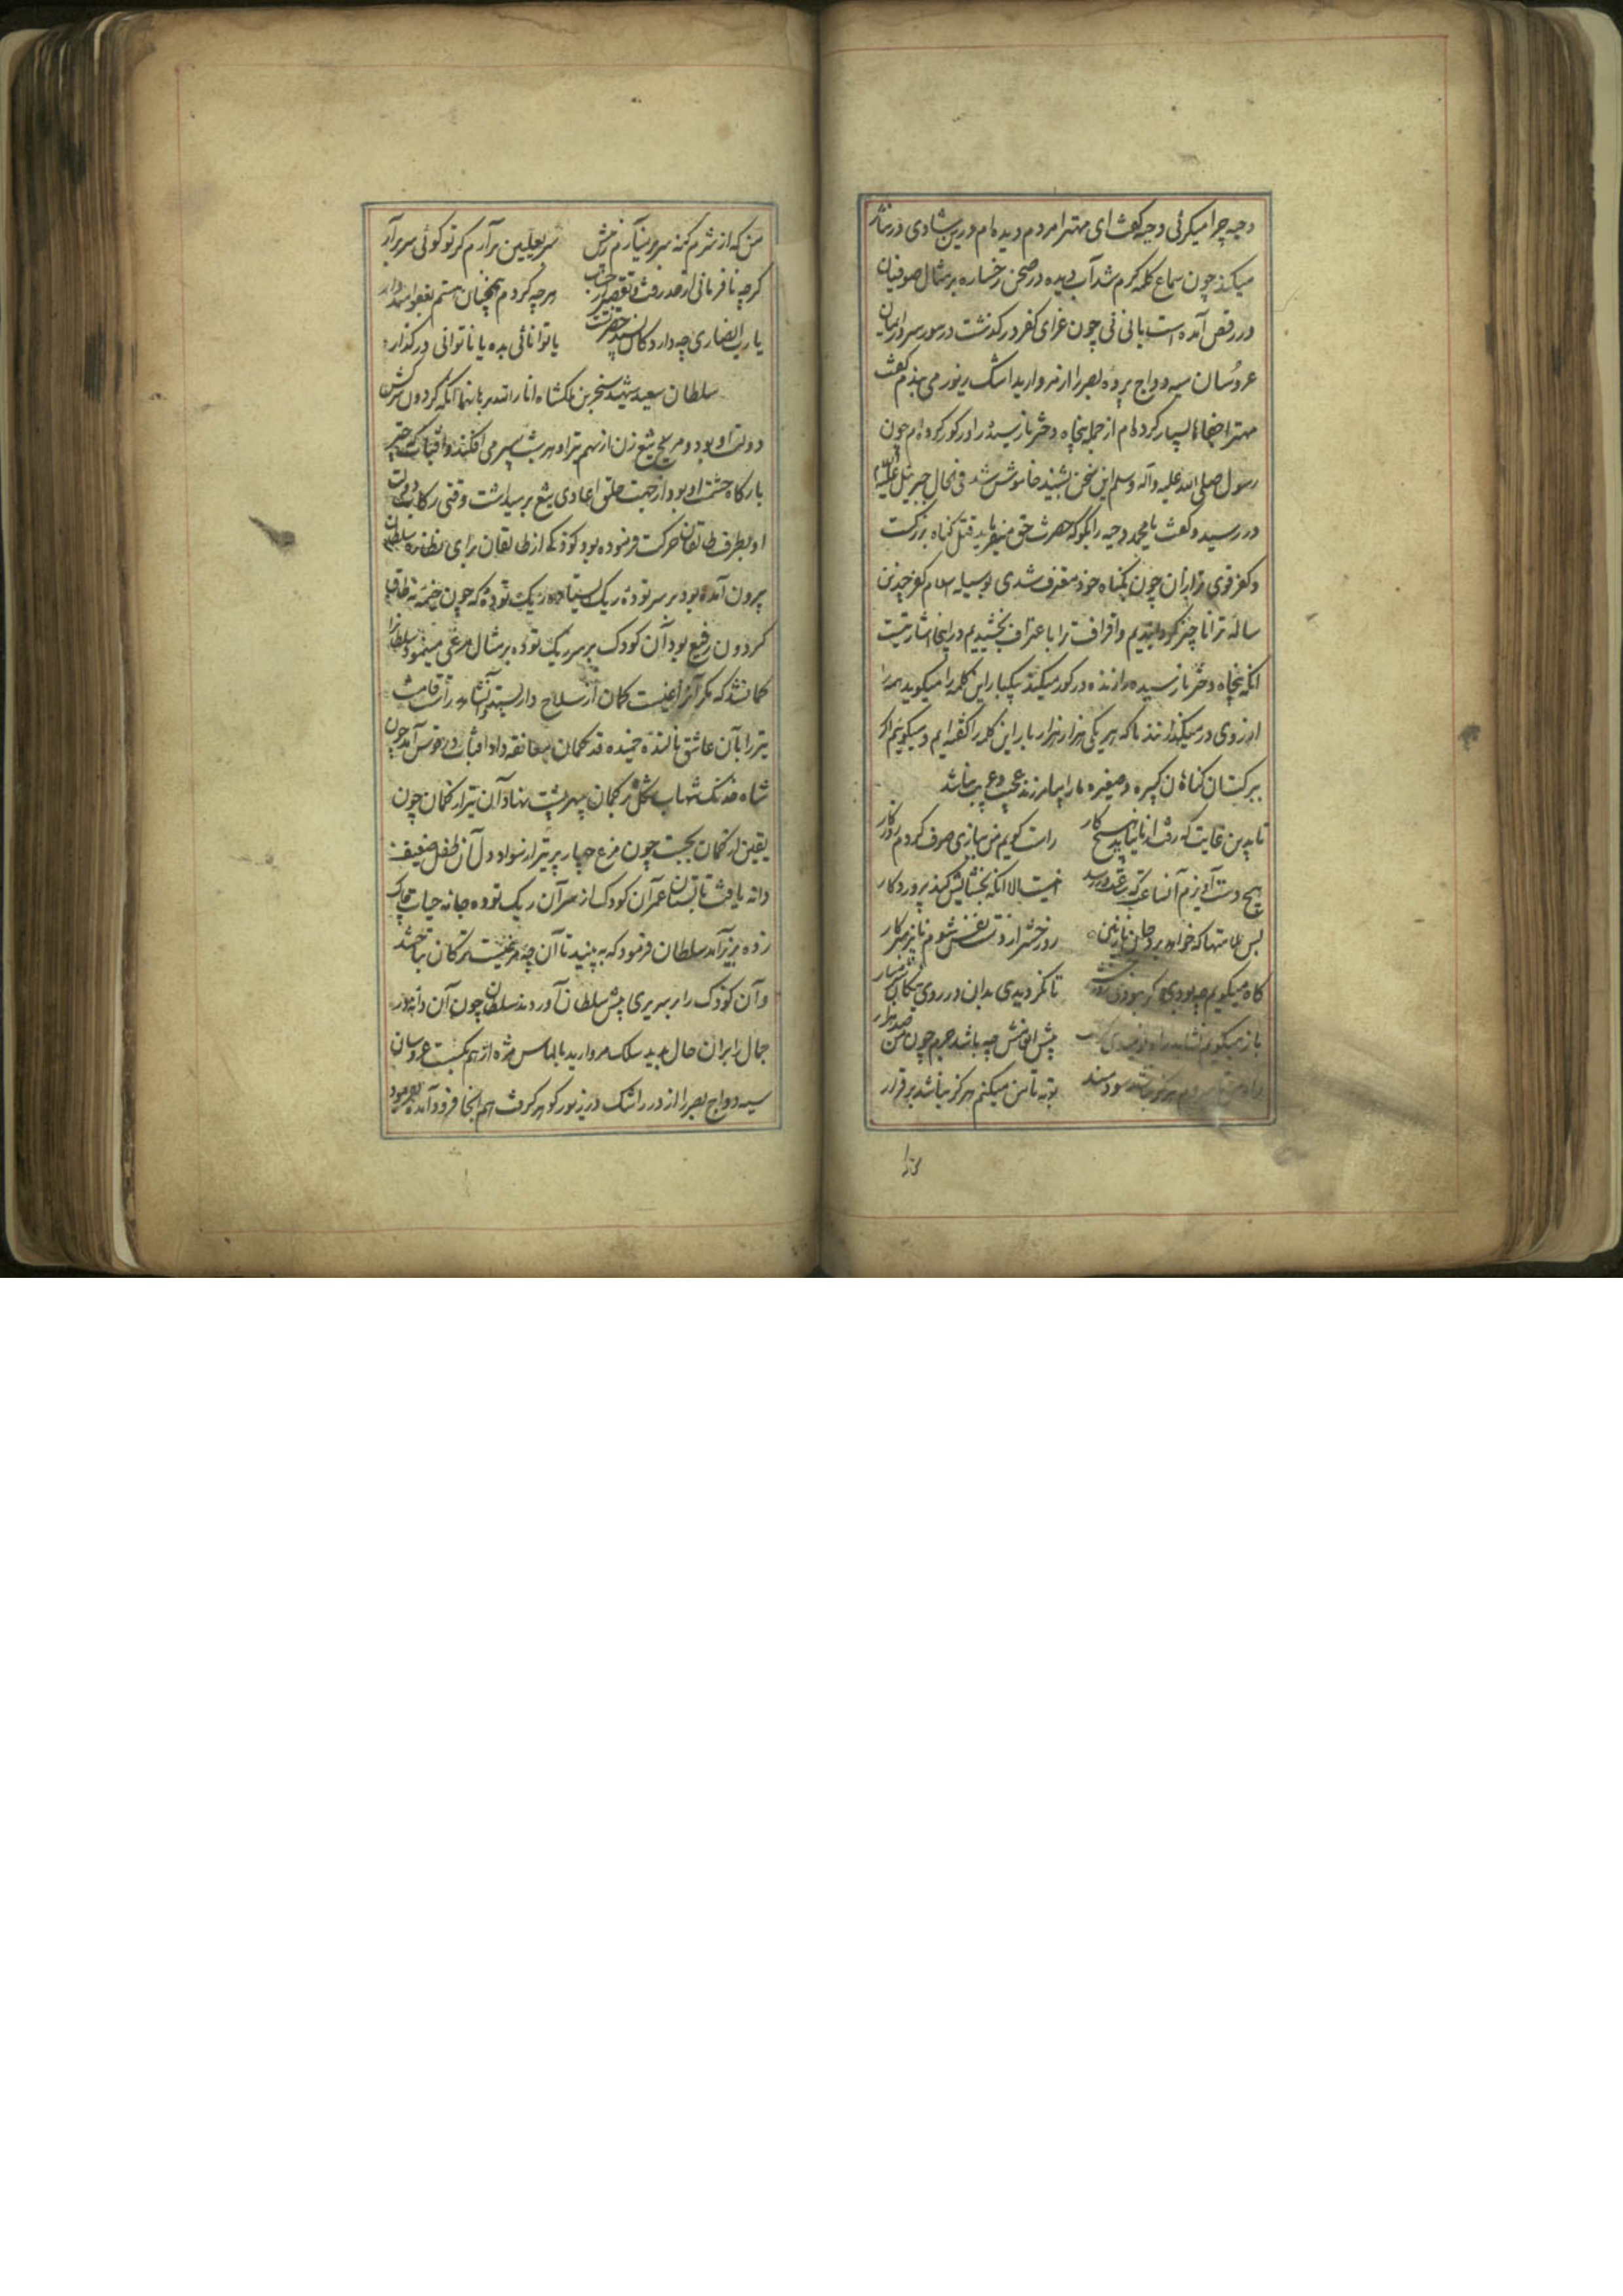 دحیه چرا میگرئی دحیه گفت ای مهتر مردم دیده ام درین شادی در نثار
میکند چون سماع کلمه گرم شد آب دیده در صحن رخساره بر مثال صوفیان
در رقص آمده است یا نی نی چون غزای کفر در گذشت در سور سرور ایمان
عروسان سیه دواج پرده بصر را از مروارید اشک زیور می بندم گفت
مهترا جفاها بسیار کرده ام از جمله پنجاه دختر نارسیده را در گور کرده ام چون
رسول صلی الله علیه وآله وسلم این سخن بشنید خاموش شد فی الحال جبرئیل علیه
در رسید و گفت یا محمد دحیه را بگو که حضرت حق میفرماید قتل گناه بزرگست
و کفر قوی تر از آن چون بگناه خود معترف شدی بوسیله اسلام کفر چندین
ساله ترا ناچیز گردانیدیم و اقتراف ترا با عتراف بخشیدیم و در اینجا اشارتیست
آنکه پنجاه دختر نارسیده را زنده در گور میکند یکبار این کلمه را میگوید همه را
از وی در میگذارند ما که هر یکی هزار هزار بار این کلمه را گفته ایم و میگوئیم اگر
ببرکت آن گناهان کبیره و صغیره ما را بیامرزند عجب و غریب نباشد
تا بدین غایت که رفت از ما نیامد هیچ کار راست گویم من ببازی صرف کردم روزگار
هیچ دست آویزم آن ساعت که ساعت در رسد نیست الا آنکه بخشایش کند پروردگار
بس ملامتها که خواهد برد جان نازنین روز حشر از دست نفس شوم ناپرهیزکار
گاه میگویم چه بودی گر نبودی تا نگردیدی بدان در روی نیکان شرمسار
باز میگویم نشاید پیش انعامش چه باشد جرم چون من صد هزار
سودمند توبه تا من میکنم هرگز نباشد برقرار
من که از شرم گنه سر بر نیارم زمین سر بعلیین برآرم گر تو گوئی سر برآر
گرچه نافرمانی از حد رفت و تقصیر از حساب هر چه کردم همچنان هستم بعفو امیدوار
یارب انصاری چه دارد کان سزد حضرتت یا توانائی بده یا ناتوانی در گذار
سلطان سعید شهید سنجر بن ملکشاه انار الله برهانهما آنکه گردون سرکش
دولت او بود و مریخ تیغ زن از سهم تیر او هر شب سپر می افکند و آفتاب که چتر
بارگاه حشمت او بود از جهت حلق اعادی تیغ بر میداشت وقتی رکاب دولت
او بطرف طالقان حرکت فرموده بود کودکی از طالقان برای نظاره سلطان
بیرون آمده بود بر سر توده ریگ ایستاده ریگ توده که چون خیمه نه طاق
گردون رفیع بود آن کودک بر سر ریگ توده بر مثال مرغی مینمود سلطان را
گمان شد که مگر آن زاغیست کمان از سلاح دار بستد و آن شاه راست قامت
تیر را با آن عاشق نالنده خمیده قد کمان معانقه داد آفتاب در قوس آمد چون
شاه خدنگ شهاب شکل در کمان سپهر پشت نهاد آن تیر از کمان چون
یقین از گمان بجست چون مرغ چهار پر تیر از سواد دل آن طفل ضعیف
دانه یافت تابستان عمر آن کودک از سر آن ریگ توده جامه حیات چاک
زده بزیر آمد سلطان فرمود که ببینید تا آن چه مرغیست ترکان بتاختند
و آن کودک را بر سریری پیش سلطان آوردند سلطان چون آن دانه در
جمال را بران حال بدید سلک مروارید بالماس مژه از هم بگسست عروسان
سیه دواج بصر را از در اشک در زیور گوهر گرفت هم آنجا فرود آمده بفرمود